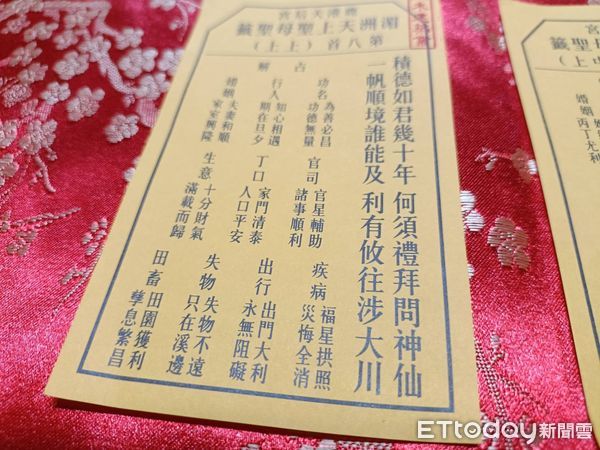 鹿港天后宮
湄洲天上聖母聖籤
第八首（上上）
積德如君幾十年 何須禮拜問神仙
一帆順境誰能及 利有攸往涉大川
占
功名 為善必昌 功德無量
官司 官星輔助 諸事順利
疾病 福星拱照 災悔全消
解
行人 知心相遇 期在旦夕
丁口 家門清泰 人口平安
出行 出門大利 永無阻礙
婚姻 夫妻和順 家家興隆
生意 十分財氣 滿載而歸
失物 失物不遠 只在溪邊
田畜 田園獲利 孳息繁昌
宮
聖籤
上）
婚姻
丙丁尤利
ETtoday新聞雲